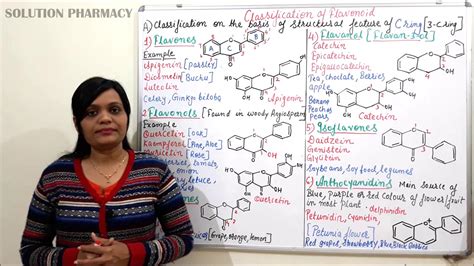 SOLUTION PHARMACY
Classification of Flavonoid
A) Classification on the basis of structural feature of C ring [3-C ring]
1) Flavones
Example
Apigenin [parsley]
Diosmetin [Buchu]
Luteolin
Celery, Ginkgo biloba
Apigenin
2) Flavonols [Found in woody Angiosperms]
Example
Quercetin [oak]
Kaempferol [Pine, Aloe]
[Rose]
Quercetin
[Grape, Orange, lemon]
4) Flavanol [Flavan-3-ol]
Catechin
Epicatechin
Epigallocatechin
Tea, chocolate, Berries
apple
Banana
Peaches
Pears
Catechin
5) Isoflavones
Daidzein
Genistein
Glycitin
Soybeans, Soy food, legumes
6) Anthocyanidins Main source of
Blue, purple or red colour of flower/fruit
in most plant. delphinidin
Petunidin, Cyanidin,
[Petunia flower]
Red grapes, Strawberry, Blue, Black Berries